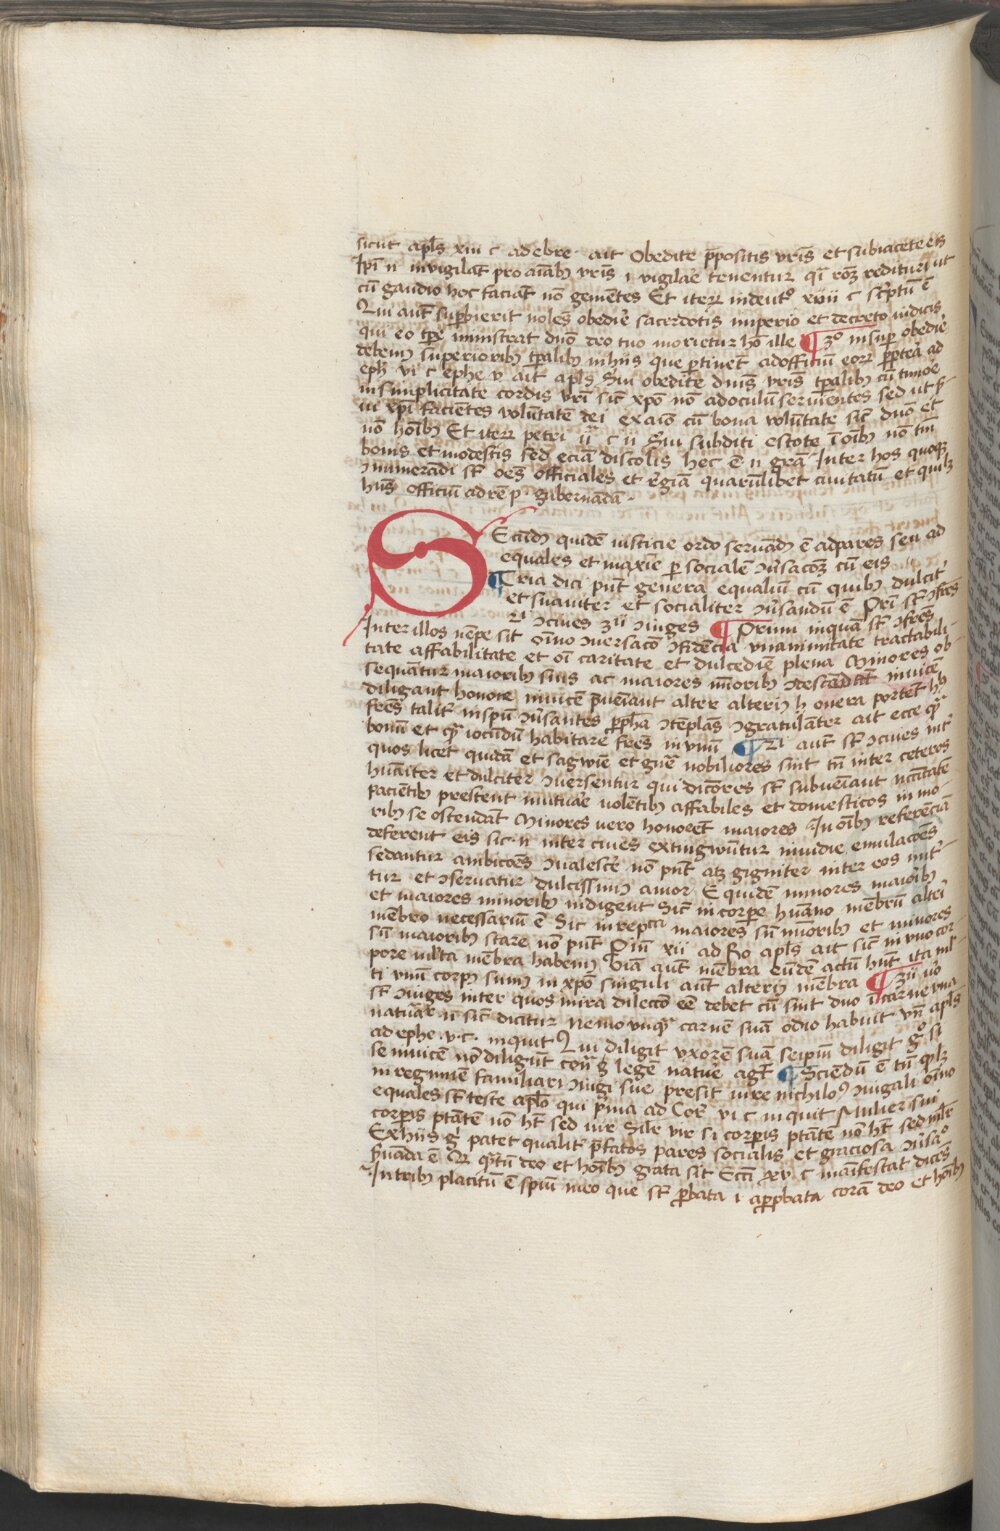 sicut apl̄s xiii c ad ebre · ait Obedite p̄positis vr̄is et subiacete eis
Ip̄i n̄ invigilāt pro aīabꝫ vr̄is i vigilare tenentur q̄i rōꝫ reddituri ut
cū gaudio hoc faciāt nō gemētes Et iterꝝ in deutꝰ xvii c sc̄ptū ē
Qui aūt sup̄bierit nolēs obedire sacerdotis imperio et decreto iudicis
qui eo tp̄e ministrat dn̄o deo tuo morietur hō ille ¶ 3º insup̄ obedie
debemꝰ superioribꝫ tp̄alibꝫ in hiis que p̄tinēt ad officiū eorꝝ p̄terea ad
eph̄ vi c ephe v aīt apl̄s Sui obedite dn̄is vr̄is tp̄alibꝫ cū timore
in simplicitate cordis vr̄i sic̄ xp̄o nō ad oculū seruientes sed ut s̄
ui xp̄i faciētes volūtatē dei ex aīo cū bona volūtate sic̄ dn̄o et
nō hoībꝫ Et iterꝝ petri ii c ii Sui subditi estote ī oībꝫ nō tm̄
bonis et modestis sed eciā discolis hec ē n̄ grā Inter hos quoqꝫ
inumerādi st̄ oēs officiales et regiā quarūlibet ciuitatū et quilꝫ
hn̄s officiū ad rē p · gubernādā ·
Secūdꝰ quidē iusticie ordo seruādꝰ ē ad pares seu ad
equales et maxīe p̄ socialē ꝯūsacōꝫ cū eis
¶ Tria dici pn̄t genera equaliū cū quibꝫ dulcit̄
et suauiter et socialiter ꝯūsandū ē Pri st̄ ꝯfres
2i ꝯciues 3ii ꝯiuges ¶ Primi inquā st̄ ꝯfres
Inter illos nēpe sit oīno ꝯuersacō ꝯfidēcia vnanimitate tractabili-
tate affabilitate et oī caritate et dulcediē plena Minores ob-
sequātur maioribꝫ suis ac maiores mīoribꝫ ꝯdescādāt inuicē
diligant honore inuicē p̄ueniant alter alteriꝰ h̄ onera portēt hꝫ
fres talit̄ in sp̄u ꝯūsantes p̄pha ꝯtēplās ꝯgratulanter ait ecce q̄
bonū et q̄ iocūdū habitare fres in vnū ¶ 2i aūt st̄ ꝯciues int̄
quos licet quidā et sagwīe et gn̄e nobiliores sint tn̄ inter ceteros
hūaiter et dulciter ꝯuersentur qui diciores st̄ subueniant nc̄itatē
pacientibꝫ prestent mutuare volētibꝫ affabiles et domesticos in mo
ribꝫ se ostendāt Minores vero honorēt maiores In oībꝫ referēciā
deferent eis sic · n̄ inter ciues extingwūtur inuidie emulacōes
sedantur ambicōes ꝯualescē nō pn̄t atqꝫ gigniter inter eos nut̄
tur et ꝯseruatur dulcissimꝰ amor Equidē minores maioribꝫ
et maiores minoribꝫ indigent Sic̄ in corpe humano mēbrū alteri
mēbro necessariū ē Sic in rep̄ca maiores sn̄ mīoribꝫ et minores
sn̄ maioribꝫ stare nō pn̄t Pim̄ xii ad Ro apl̄s ait sic̄ in vno cor-
pore ml̄ta mēbra habemꝰ Oīa aūt mēbra eūdē actū nō hn̄t ita ml̄-
ti vnū corpꝰ sumꝰ in xp̄o singuli aūt alteriꝰ mēbra ¶ 3ii v̄o
st̄ ꝯiuges inter quos mira dilectō eē debet cū sint duo ī carne vna
natur̄ n̄ sic̄ dicitur nemo vnq̄ carnē suā odio habuit vn̄ apl̄s
ad ephe · v · c · inquit Qui diligit vxorē suā seip̄m diligit gͦ si
se inuicē nō diligūt cont̄ legē nature agt̄ ¶ Sciēdū ē tn̄ qd̄ lꝫ
in regimīe familiari ꝯiugi sue presit iure nichilōꝰ ꝯiugali oīno
equales st̄ teste aplo qui p̄ma ad Cor̄ vi c inquit Mulier sui
corpis ptātē nō hꝫ sed vir Silr vir si corpis ptātē nō hꝫ sed mlr̄
Ex hiis gͦ patet qualit̄ p̄fatos pares socialis et graciosa ꝯūsaͦ
p̄uāda ē Et q̄tū deo et hoībꝫ grata sit Ecc̄i xxv c manifestat dicēs
In tribꝫ placitū ē sp̄ui meo que st̄ p̄bata i app̄bata corā deo et hoībꝫ